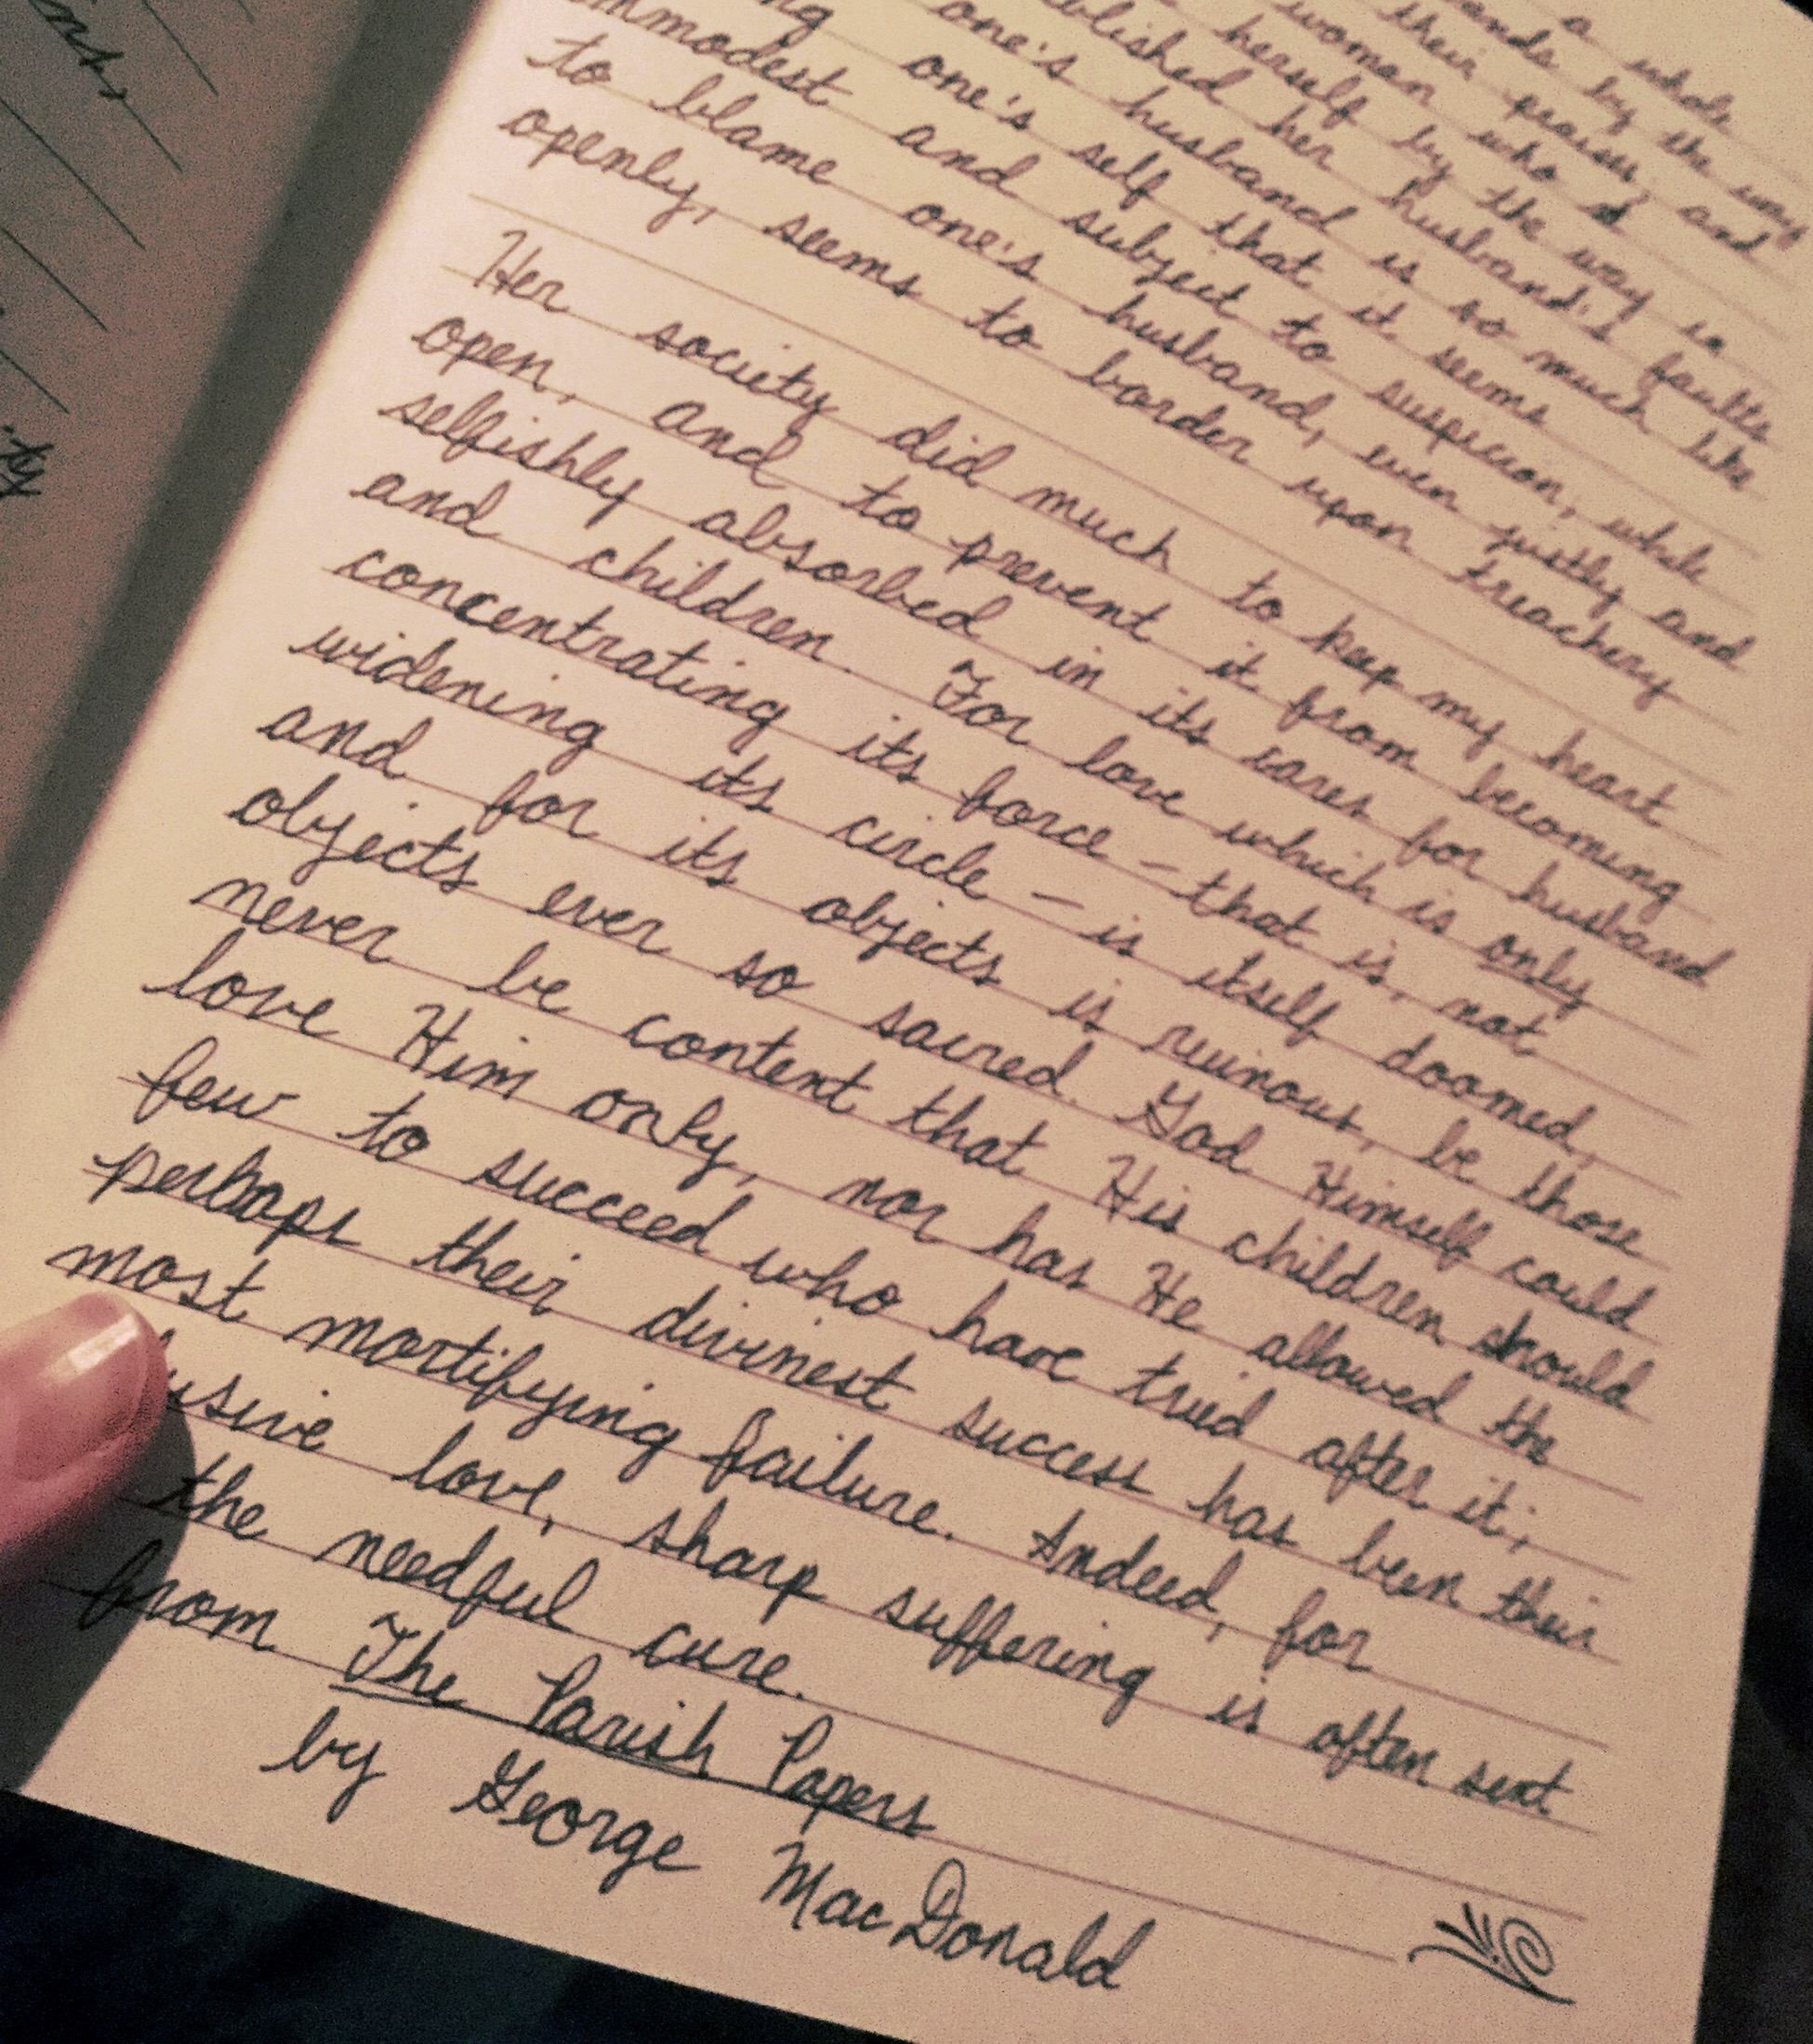 a whole
by the way
their praises, and
woman who is
herself by the way in
one's her husband's faults
one's husband is so much like
one's self that it seems
and subject to suspicion, while
to blame one's husband, even justly and
openly, seems to border upon treachery
Her society did much to keep my heart
open, and to prevent it from becoming
selfishly absorbed in its cares for husband
and children. For love which is only
concentrating its force – that is, not
widening its circle – is itself doomed,
and for its objects is ruinous, be those
objects ever so sacred. God Himself could
never be content that His children should
love Him only, nor has He allowed the
few to succeed who have tried after it;
perhaps their divinest success has been their
most mortifying failure. Indeed, for
usive love, sharp suffering is often sent
the needful cure.
from The Parish Papers
by George MacDonald